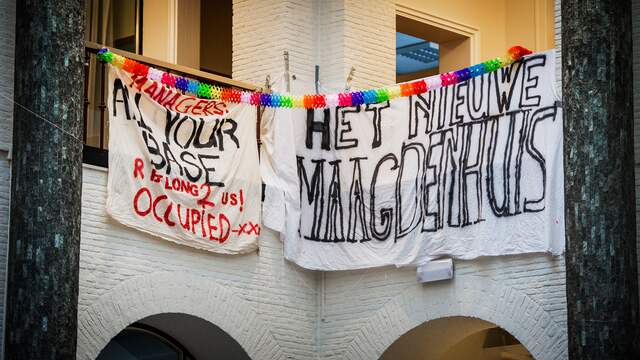 MANAGERS:
ALL YOUR
BASE
R BELONG 2 US!
OCCUPIED-XX
HET NIEUWE
MAAGDENHUIS